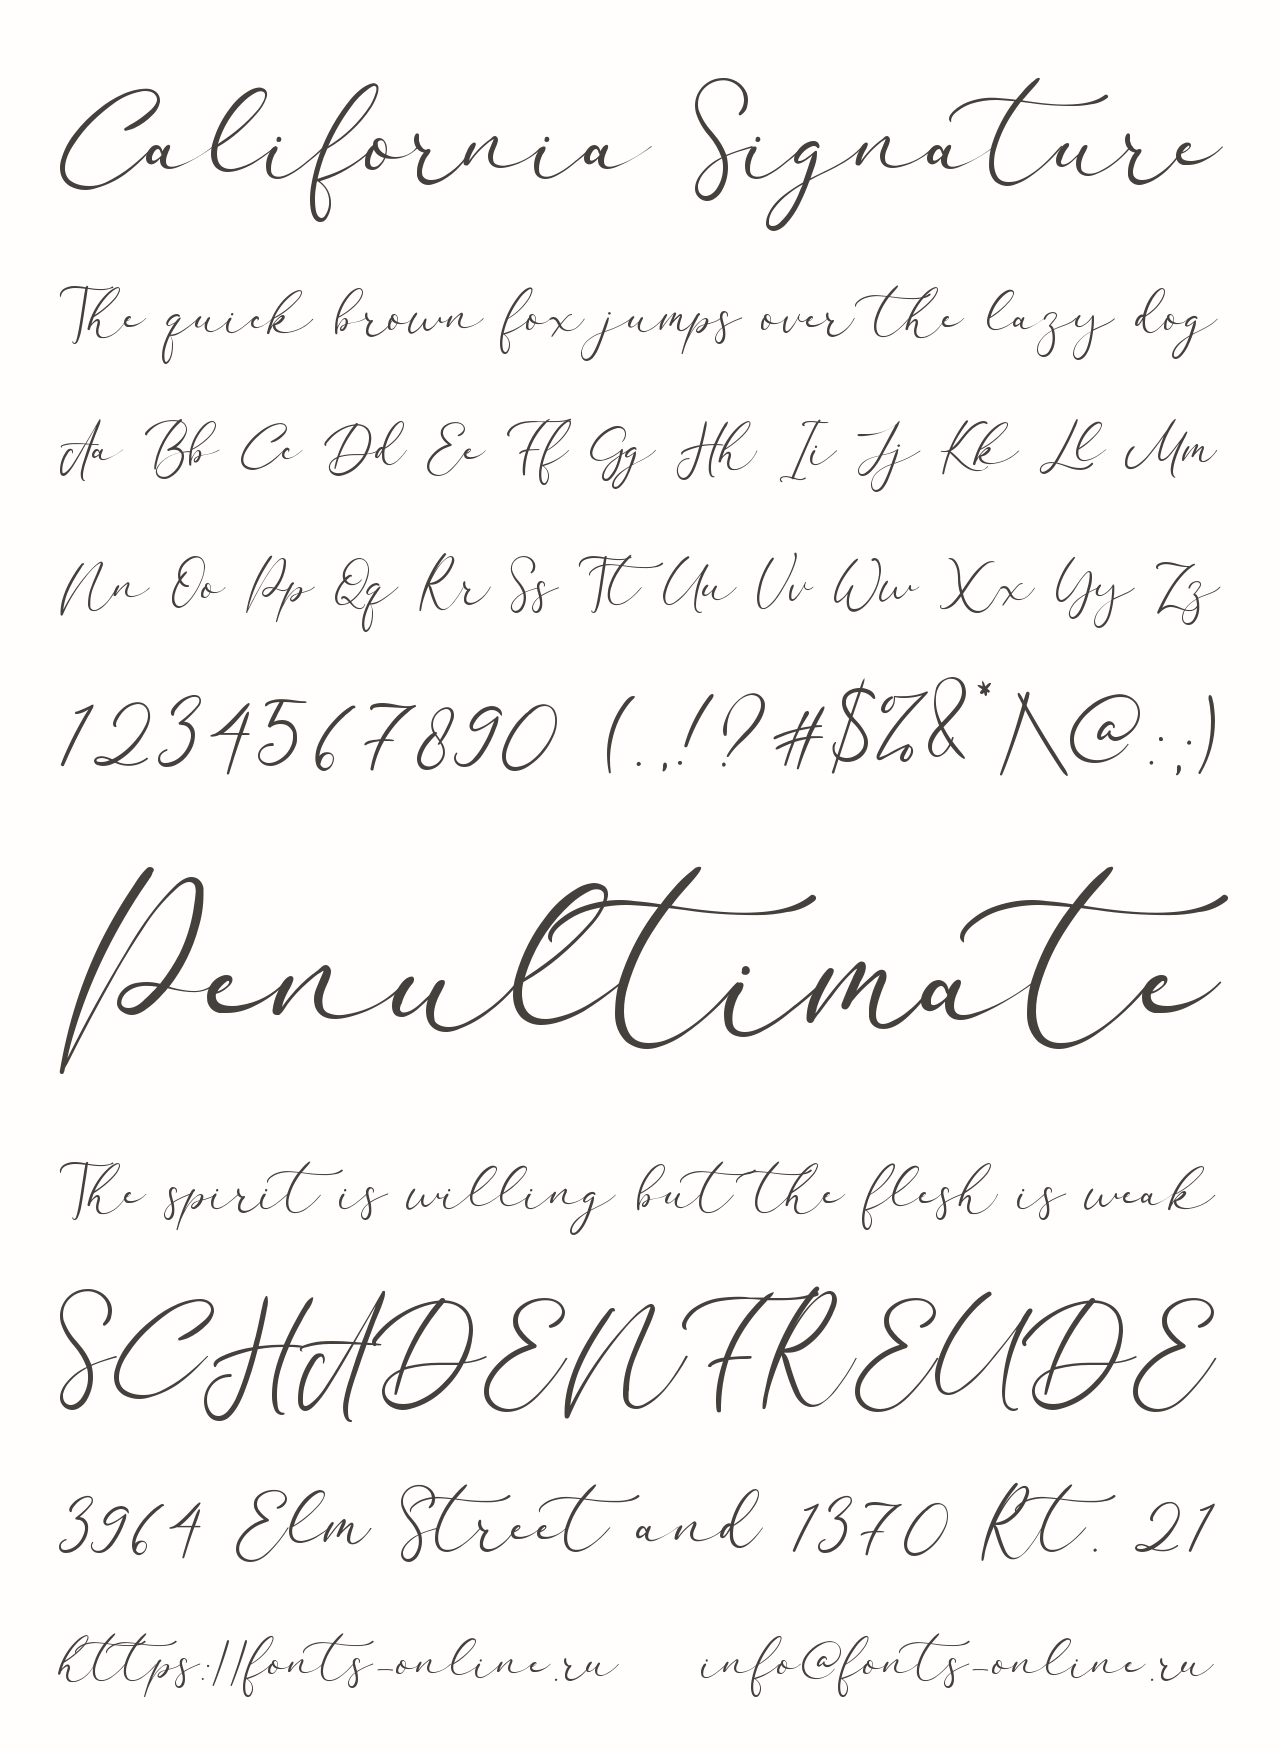 California Signature
The quick brown fox jumps over the lazy dog
Aa Bb Cc Dd Ee Ff Gg Hh Ii Jj Kk Ll Mm
Nn Oo Pp Qq Rr Ss Tt Uu Vv Ww Xx Yy Zz
1234567890 (.,!?#$%&*/\@:;)
Penultimate
The spirit is willing but the flesh is weak
SCHADENFREUDE
3964 Elm Street and 1370 Rt. 21
https://fonts-online.ru info@fonts-online.ru